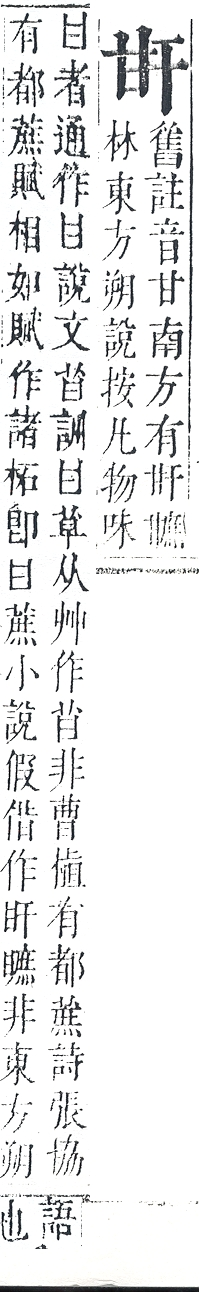 舊註音甘南方有
林東方朔說按凡物味
甘者通作甘說文苷訓甘草从艸作苷非曹植有都蔗詩張協
有都蔗賦相如賦作諸柘卽甘蔗小說假借作非東方朔
語
也